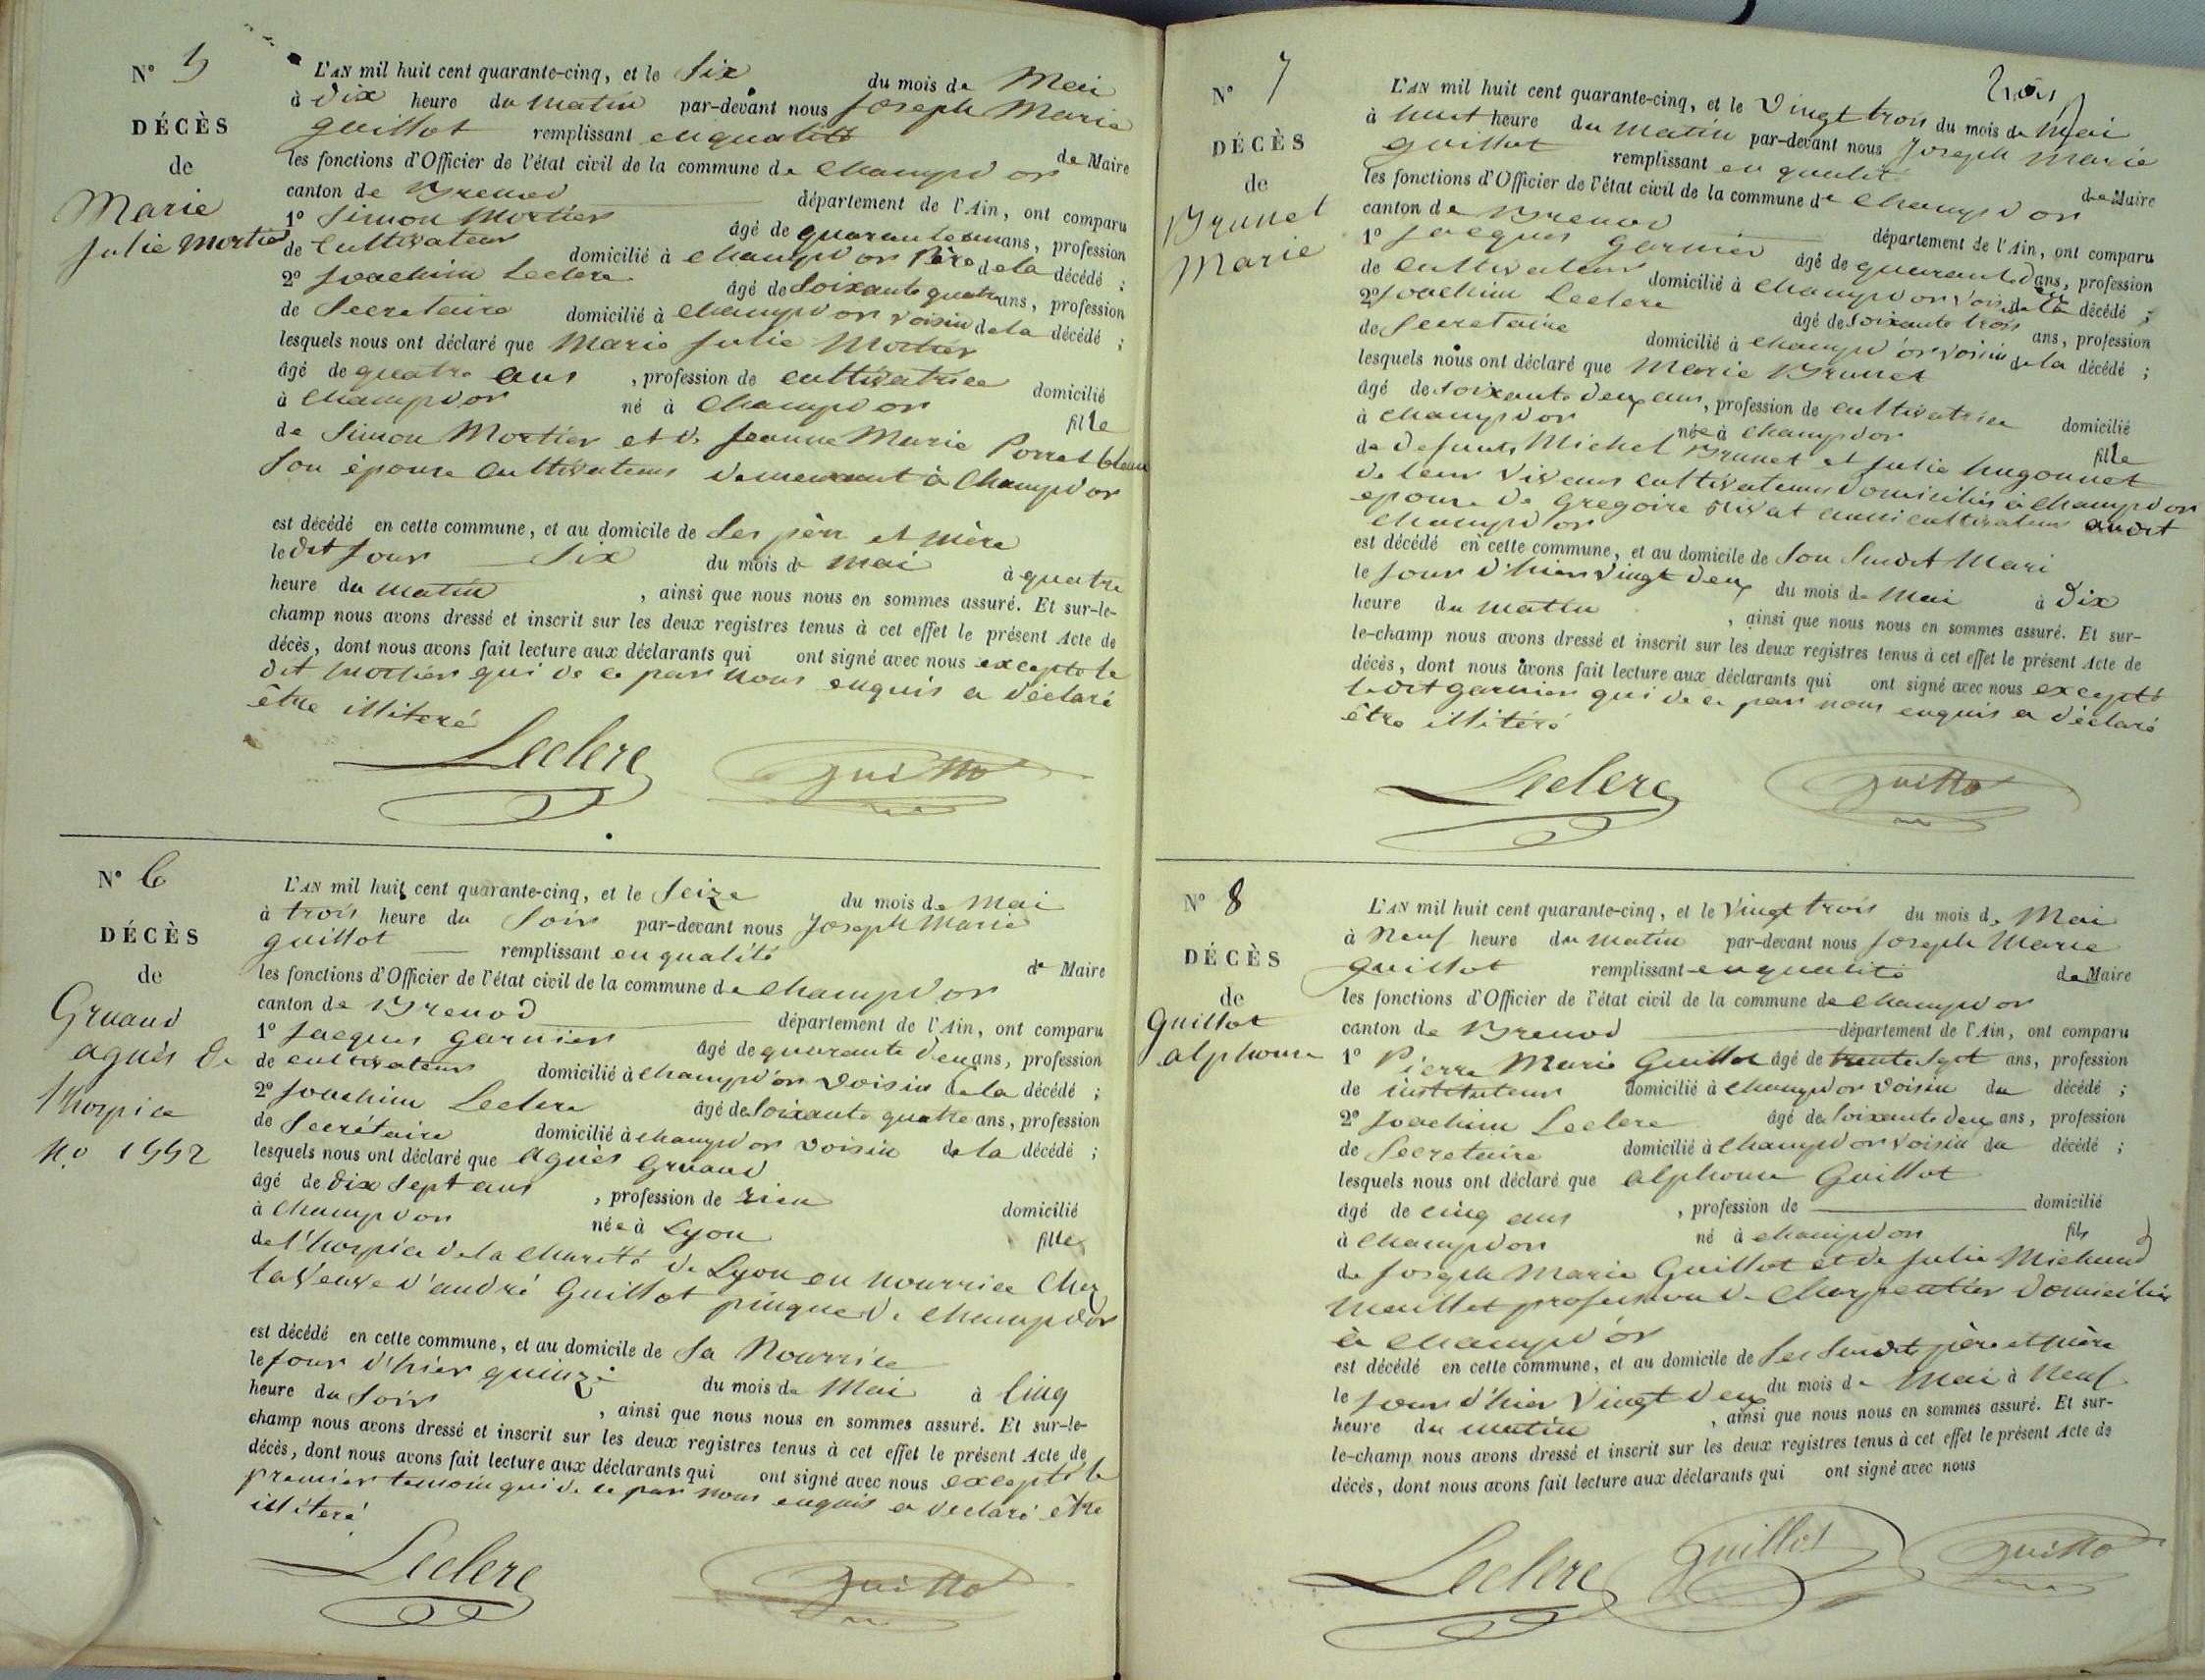 N° 5
DÉCÈS
de
Marie
Julie Mortier
L'AN mil huit cent quarante-cinq, et le Six du mois de Mai
à Dix heure du matin par-devant nous Joseph Marie
guillot remplissant en qualité de Maire
les fonctions d'Officier de l'état civil de la commune de Champd'or
canton de Brenod département de l'Ain, ont comparu
1° Simon Mortier âgé de quarante ans, profession
de Cultivateur domicilié à Champd'or Père de la décédé ;
2° Joachim Leclerc âgé de Soixante quatre ans, profession
de Secretaire domicilié à Champd'or voisin de la décédé ;
lesquels nous ont déclaré que Marie Julie Mortier
âgé de quatre ans , profession de cultivatrice domicilié
à Champd'or né à Champd'or fille
de Simon Mortier et de Jeanne Marie Porret
Son épouse Cultivateurs demeurant à Champd'or
est décédé en cette commune, et au domicile de Ses père et mère
le dit Jour Six du mois de mai à quatre
heure du matin , ainsi que nous nous en sommes assuré. Et sur-le-
champ nous avons dressé et inscrit sur les deux registres tenus à cet effet le présent Acte de
décès, dont nous avons fait lecture aux déclarants qui ont signé avec nous excepté le
dit Mortier qui de ce par nous enquis a déclaré
être illiteré
Leclerc Guillot
N° 6
DÉCÈS
de
Gruand
agnès de
l'hospice
N.° 1992
L'AN mil huit cent quarante-cinq, et le Seize du mois de Mai
à trois heure du Soir par-devant nous Joseph Marie
guillot remplissant en qualité de Maire
les fonctions d'Officier de l'état civil de la commune de Champd'or
canton de Brenod département de l'Ain, ont comparu
1° Jacques Garnier âgé de quarante deux ans, profession
de cultivateur domicilié à Champd'or voisin de la décédé ;
2° Joachim Leclerc âgé de Soixante quatre ans, profession
de Secrétaire domicilié à champd'or voisin de la décédé ;
lesquels nous ont déclaré que agnès Gruand
âgé de Dix Sept ans , profession de rien domicilié
à Champd'or née à Lyon fille
de l'hospice de la Charité de Lyon en nourrice Chez
la Veuve d'andré Guillot pinque de Champd'or
est décédé en cette commune, et au domicile de Sa Nourrice
le Jour d'hier quinze du mois de Mai à Cinq
heure du Soir , ainsi que nous nous en sommes assuré. Et sur-le-
champ nous avons dressé et inscrit sur les deux registres tenus à cet effet le présent Acte de
décès, dont nous avons fait lecture aux déclarants qui ont signé avec nous excepté le
premier temoin qui de ce par nous enquis a declaré être
illiteré
Leclerc Guillot
trois
N° 7
DÉCÈS
de
Brunet
Marie
L'AN mil huit cent quarante-cinq, et le Vingt trois du mois de Mai
à huit heure du matin par-devant nous Joseph Marie
guillot remplissant en qualité de Maire
les fonctions d'Officier de l'état civil de la commune de Champd'or
canton de Brenod département de l'Ain, ont comparu
1° Jacques Garnier âgé de quarante d ans, profession
de Cultivateur domicilié à Champd'or voisin de la décédé ;
2° Joachim Leclerc âgé de Soixante trois ans, profession
de Secretaire domicilié à champd'or voisin de la décédé ;
lesquels nous ont déclaré que Marie Brunet
âgé de Soixante deux ans, profession de cultivatrice domicilié
à Champd'or née à Champd'or fille
de defunts Michel Brunet et Julie hugonnet
de leur Vivans cultivateurs domiciliés à Champd'or
epouse de Gregoire Bivat aussi cultivateur audit
Champd'or
est décédé en cette commune, et au domicile de Son Susdit Mari
le Jour d'hier Vingt deux du mois de Mai à Dix
heure du matin , ainsi que nous nous en sommes assuré. Et sur-
le-champ nous avons dressé et inscrit sur les deux registres tenus à cet effet le présent Acte de
décès, dont nous avons fait lecture aux déclarants qui ont signé avec nous excepté
ledit garnier qui de ce par nous enquis a déclaré
être illitéré
Leclerc Guillot
N° 8
DÉCÈS
de
Guillot
alphonse
L'AN mil huit cent quarante-cinq, et le Vingt trois du mois de Mai
à Neuf heure du matin par-devant nous Joseph Marie
guillot remplissant en qualité de Maire
les fonctions d'Officier de l'état civil de la commune de Champd'or
canton de Brenod département de l'Ain, ont comparu
1° Pierre Marie Guillot âgé de trente Sept ans, profession
de instituteur domicilié à Champd'or voisin du décédé ;
2° Joachim Leclerc âgé de Soixante deux ans, profession
de Secretaire domicilié à Champd'or voisin du décédé ;
lesquels nous ont déclaré que alphonse Guillot
âgé de cinq ans , profession de domicilié
à Champd'or né à champd'or fils
de Joseph Marie Guillot et de Julie Michaud
Maillet profession de Charpentier Domiciliés
à Champd'or
est décédé en cette commune, et au domicile de Ses Susdits père et mère
le Jour d'hier Vingt deux du mois de Mai à Neuf
heure du matin , ainsi que nous nous en sommes assuré. Et sur-
le-champ nous avons dressé et inscrit sur les deux registres tenus à cet effet le présent Acte de
décès, dont nous avons fait lecture aux déclarants qui ont signé avec nous
Leclerc Guillot Guillot